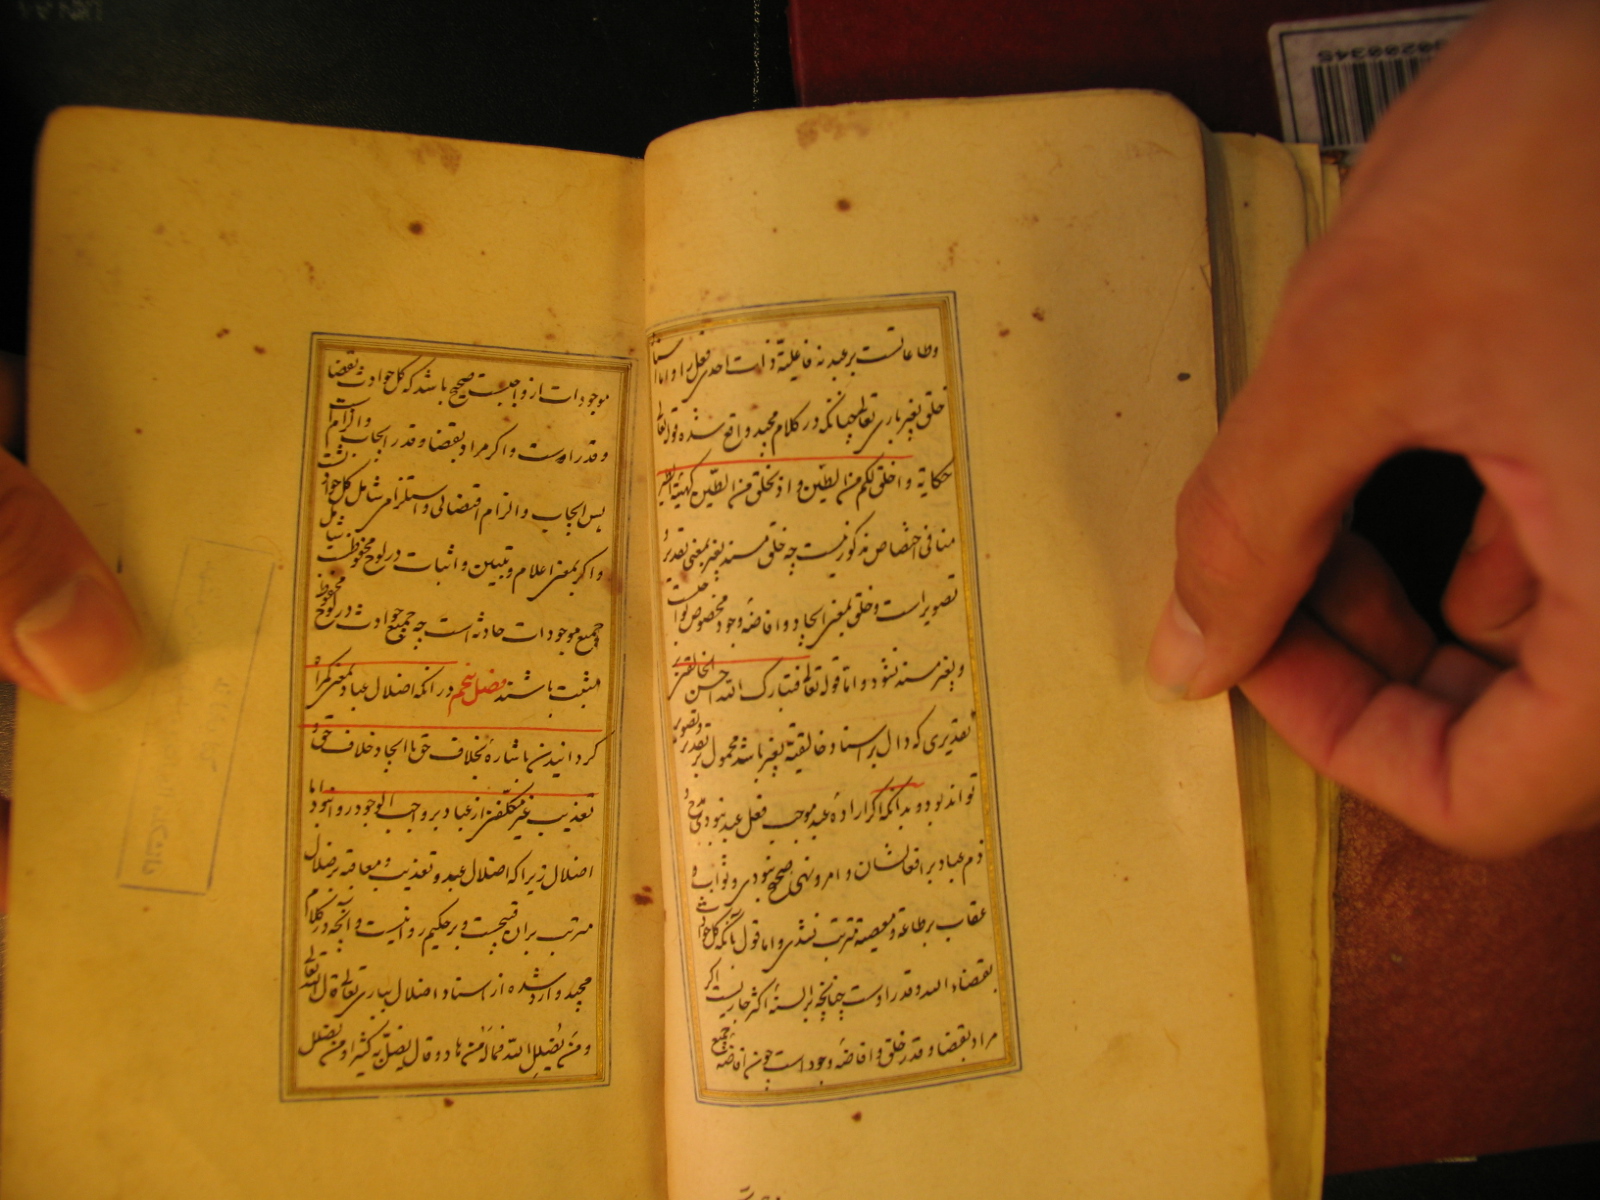 وطاعاتست بر عبد نه فاعلیة ذات احدی فعل را و اما اسناد
خلق بغیر باری تعالی چنانکه در کلام مجید واقع شده قوله تعالی
حکایة و اخلق لکم من الطین و اذ تخلق من الطین کهیئة الطیر
منافی اختصاص مذکور نیست چه خلق مسند بغیر بمعنی تقدیر و
تصویر است و خلق بمعنی ایجاد و افاضهٔ وجود مخصوص بواجبست
و بغیر مسند نشود و اما قوله تعالی فتبارک الله احسن الخالقین
تقدیری که دال بر اسناد خالقیة بغیر باشد محمول بر تقدیر و تصویر
تواند بود و بدانکه اگر ارادهٔ عبد موجب فعل عبد نبودی مدح و
ذم عباد بر افعالشان و امر و نهی صحیح نبودی و ثواب و
عقاب بر طاعة و معصیة مترتب نشدی و اما قول بآنکه کل حوادث
بقضاء الله و قدر اوست چنانچه بر السنهٔ اکثر جاریست اگر
مراد بقضا و قدر خلق و افاضهٔ وجود است چون افاضهٔ جمیع
موجودات از واجبست صحیح باشد که کل حوادث بقضا
و قدر اوست و اگر مراد بقضا و قدر ایجاب و الزام است
پس ایجاب و الزام اقتضائی و استلزامی شامل کل حوادث نیست
و اگر بمعنی اعلام و تبیین و اثبات در لوح محفوظست شامل
جمیع موجودات حادثه است چه جمیع حوادث در لوح محفوظ
مثبت باشند فصل پنجم در آنکه اضلال عباد بمعنی گمراه
گردانیدن باشارهٔ بخلاف حق یا ایجاد خلاف حق و
تعذیب غیر مکلفین از عباد بر واجب الوجود روا نبود اما
اضلال زیرا که اضلال عبد و تعذیب و معاقبه بر ضلال
مترتب بر آن قبیحست و بر حکیم روا نیست و آنچه در کلام
مجید وارد شده از اسناد اضلال بباری تعالی قال الله تعالی
و من یضلل الله فماله من هاد و قال یضل به کثیرا و من یضلل